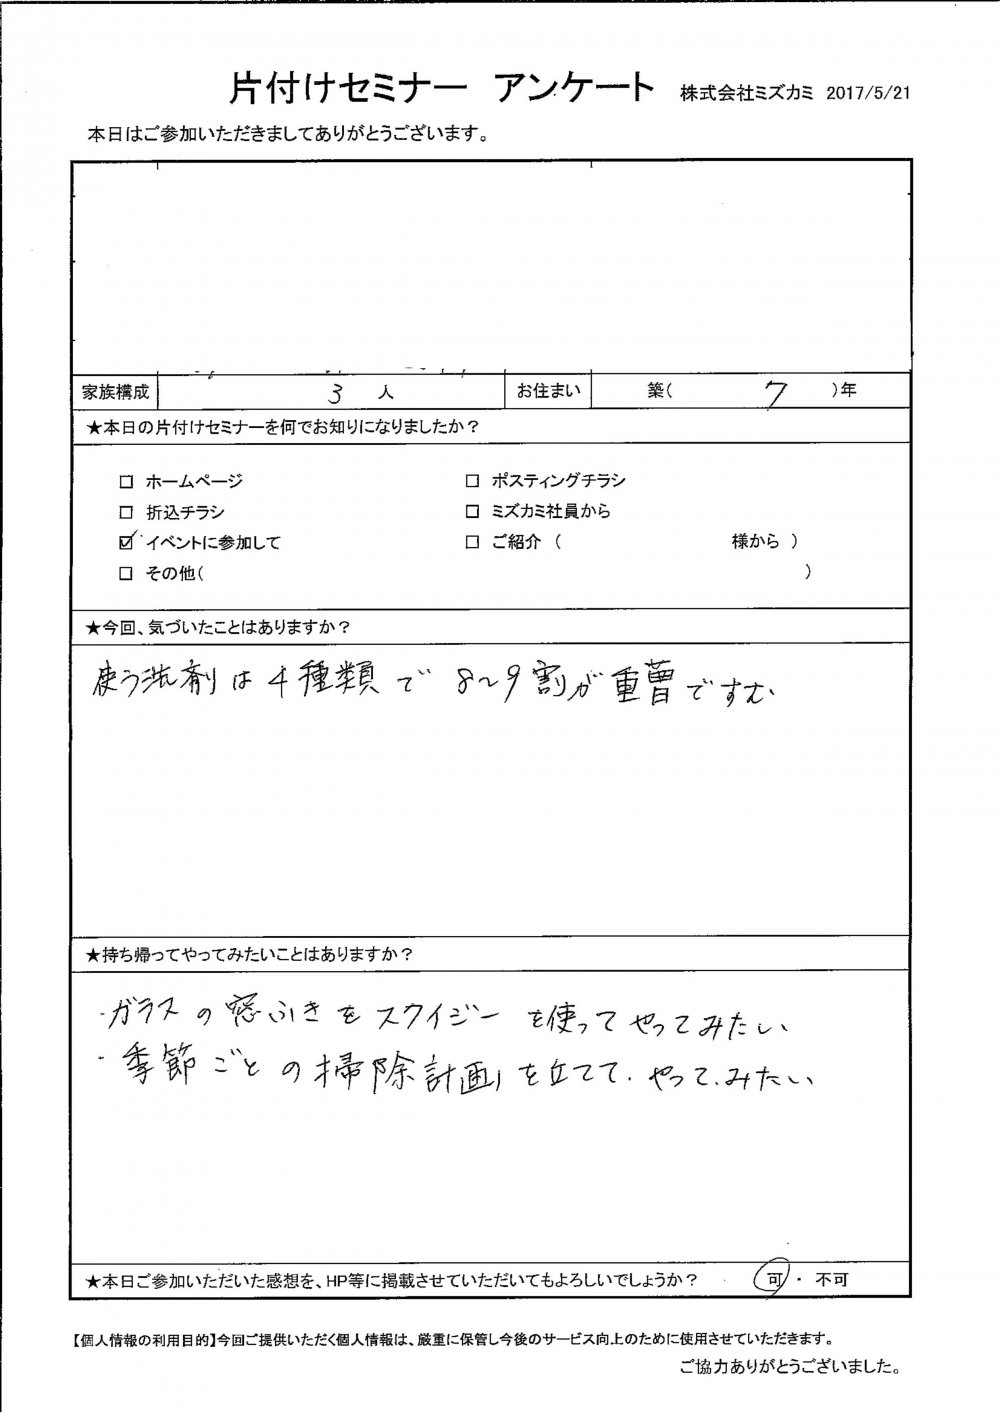 片付けセミナー アンケート 株式会社ミズカミ 2017/5/21
本日はご参加いただきましてありがとうございます。
家族構成 3 人 お住まい 築( 7 )年
★本日の片付けセミナーを何でお知りになりましたか?
□ ホームページ □ ポスティングチラシ
□ 折込チラシ □ ミズカミ社員から
☑ イベントに参加して □ ご紹介 ( 様から )
□ その他( )
★今回、気づいたことはありますか?
使う洗剤は4種類で8~9割が重曹ですむ
★持ち帰ってやってみたいことはありますか?
・ガラスの窓ふきをスクイジーを使ってやってみたい
・季節ごとの掃除計画を立てて、やって、みたい
★本日ご参加いただいた感想を、HP等に掲載させていただいてもよろしいでしょうか? 可 ・ 不可
【個人情報の利用目的】今回ご提供いただく個人情報は、厳重に保管し今後のサービス向上のために使用させていただきます。
ご協力ありがとうございました。